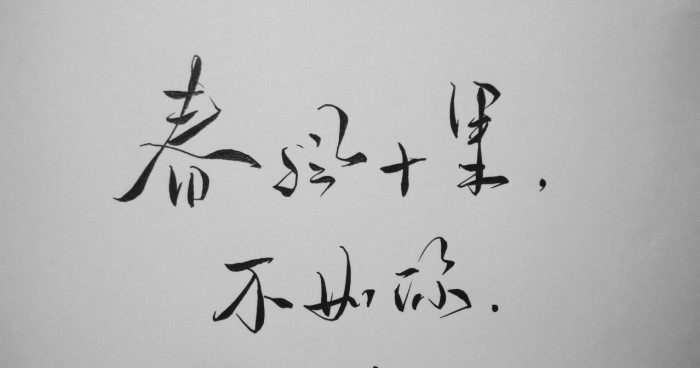 春风十里，
不如你．